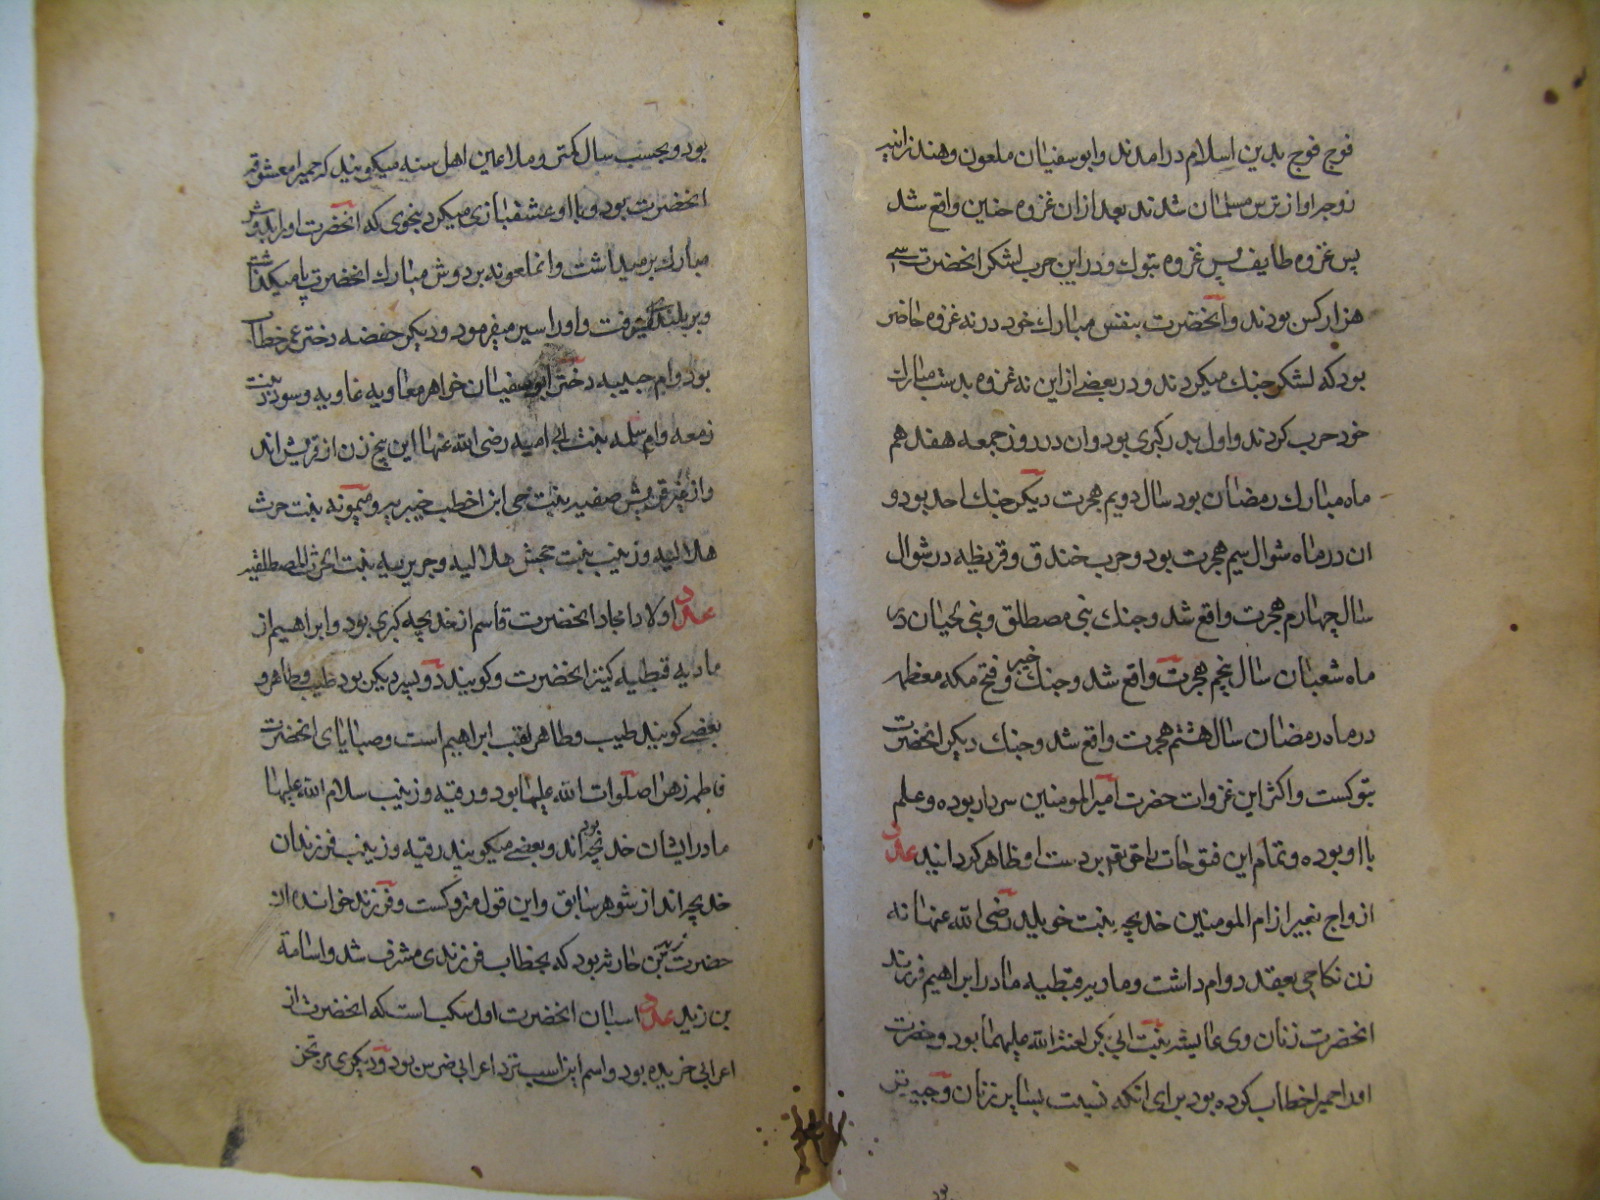 فوج فوج بدین اسلام درامدند وابوسفیان ملعون وهند زانیه
زوجه او از ترس مسلمان شدند بعد ازان غزوه حنین واقع شد
پس غزوه طایف پس غزوه تبوك ودر این حرب لشکر انحضرت سی
هزار کس بودند وانحضرت بنفس مبارك خود در نه غزوه حاضر
بود که لشکر جنك میکردند ودر بعضی از این نه غزوه بدست مبارك
خود حرب کردند واول بدر کبری بود وان در روز جمعه هفدهم
ماه مبارك رمضان بود سال دویم هجرت دیگر جنك احد بود و
ان در ماه شوال سیم هجرت بود وحرب خندق وقریظه در شوال
سال چهارم هجرت واقع شد وجنك بنی مصطلق وبنی لحیان در
ماه شعبان سال پنجم هجرت واقع شد وجنك خیبر وفتح مکه معظمه
در ماه رمضان سال هشتم هجرت واقع شد وجنك دیگر انحضرت
تبوکست واکثر این غزوات حضرت امیر المومنین سردار بوده وعلم
با او بوده وتمام این فتوحات را حق بر دست او ظاهر کردانید عدد
ازواج پیغمبر از ام المومنین خدیجه بنت خویلد رضی الله عنها نه
زن نکاحی بعقد دوام داشت وماریه قبطیه مادر ابراهیم فرزند
انحضرت زنان وی عایشه بنت ابی بکر لعنة الله علیهما بود وحضرت
او را حمیرا خطاب کرده بود برای انکه نسبت بسایر زنان وجیه تر
بود
بود وبحسب سال کمتر وملاعین اهل سنه میکویند که حمیرا معشوقه
انحضرت بود وبا او عشقبازی میکرد بنحوی که انحضرت او را بدوش
مبارك بر میداشت وانملعونه بر دوش مبارك انحضرت پا میکذاشت
وبر بلندی میرفت واو را سیر میفرمود ودیگر حفضه دختر عمر خطاب
بود وام حبیبه دختر ابوسفیان خواهر معاویه غاویه وسوده بنت
زمعه وام سلمه بنت ابی امیه رضی الله عنها این پنج زن از قریش اند
واز غیر قریش صفیه بنت حی ابن اخطب خیبریه ومیمونه بنت حرث
هلالیه وزینب بنت جحش هلالیه وجریریه بنت الحرث المصطلقیه
عدد اولاد امجاد انحضرت قاسم از خدیجه کبری بود وابراهیم از
ماریه قبطیه کنیز انحضرت وکویند دو پسر دیکر بود طیب وطاهر و
بعضی کویند طیب وطاهر لقب ابراهیم است وصبایای انحضرت
فاطمه زهرا صلوات الله علیها بود ورقیه وزینب سلام الله علیها
مادر ایشان خدیجه بود اند وبعضی میکویند رقیه وزینب فرزندان
خدیجه اند از شوهر سابق واین قول متروکست وفرزند خوانده از
حضرت زید بن حارثه بود که بخطاب فرزندی مشرف شد واسامة
بن زید عدد اسبان انحضرت اول سکب است که انحضرت از
اعرابی خریده بود واسم این اسب نزد اعرابی ضرس بود ودیکری مرتجز